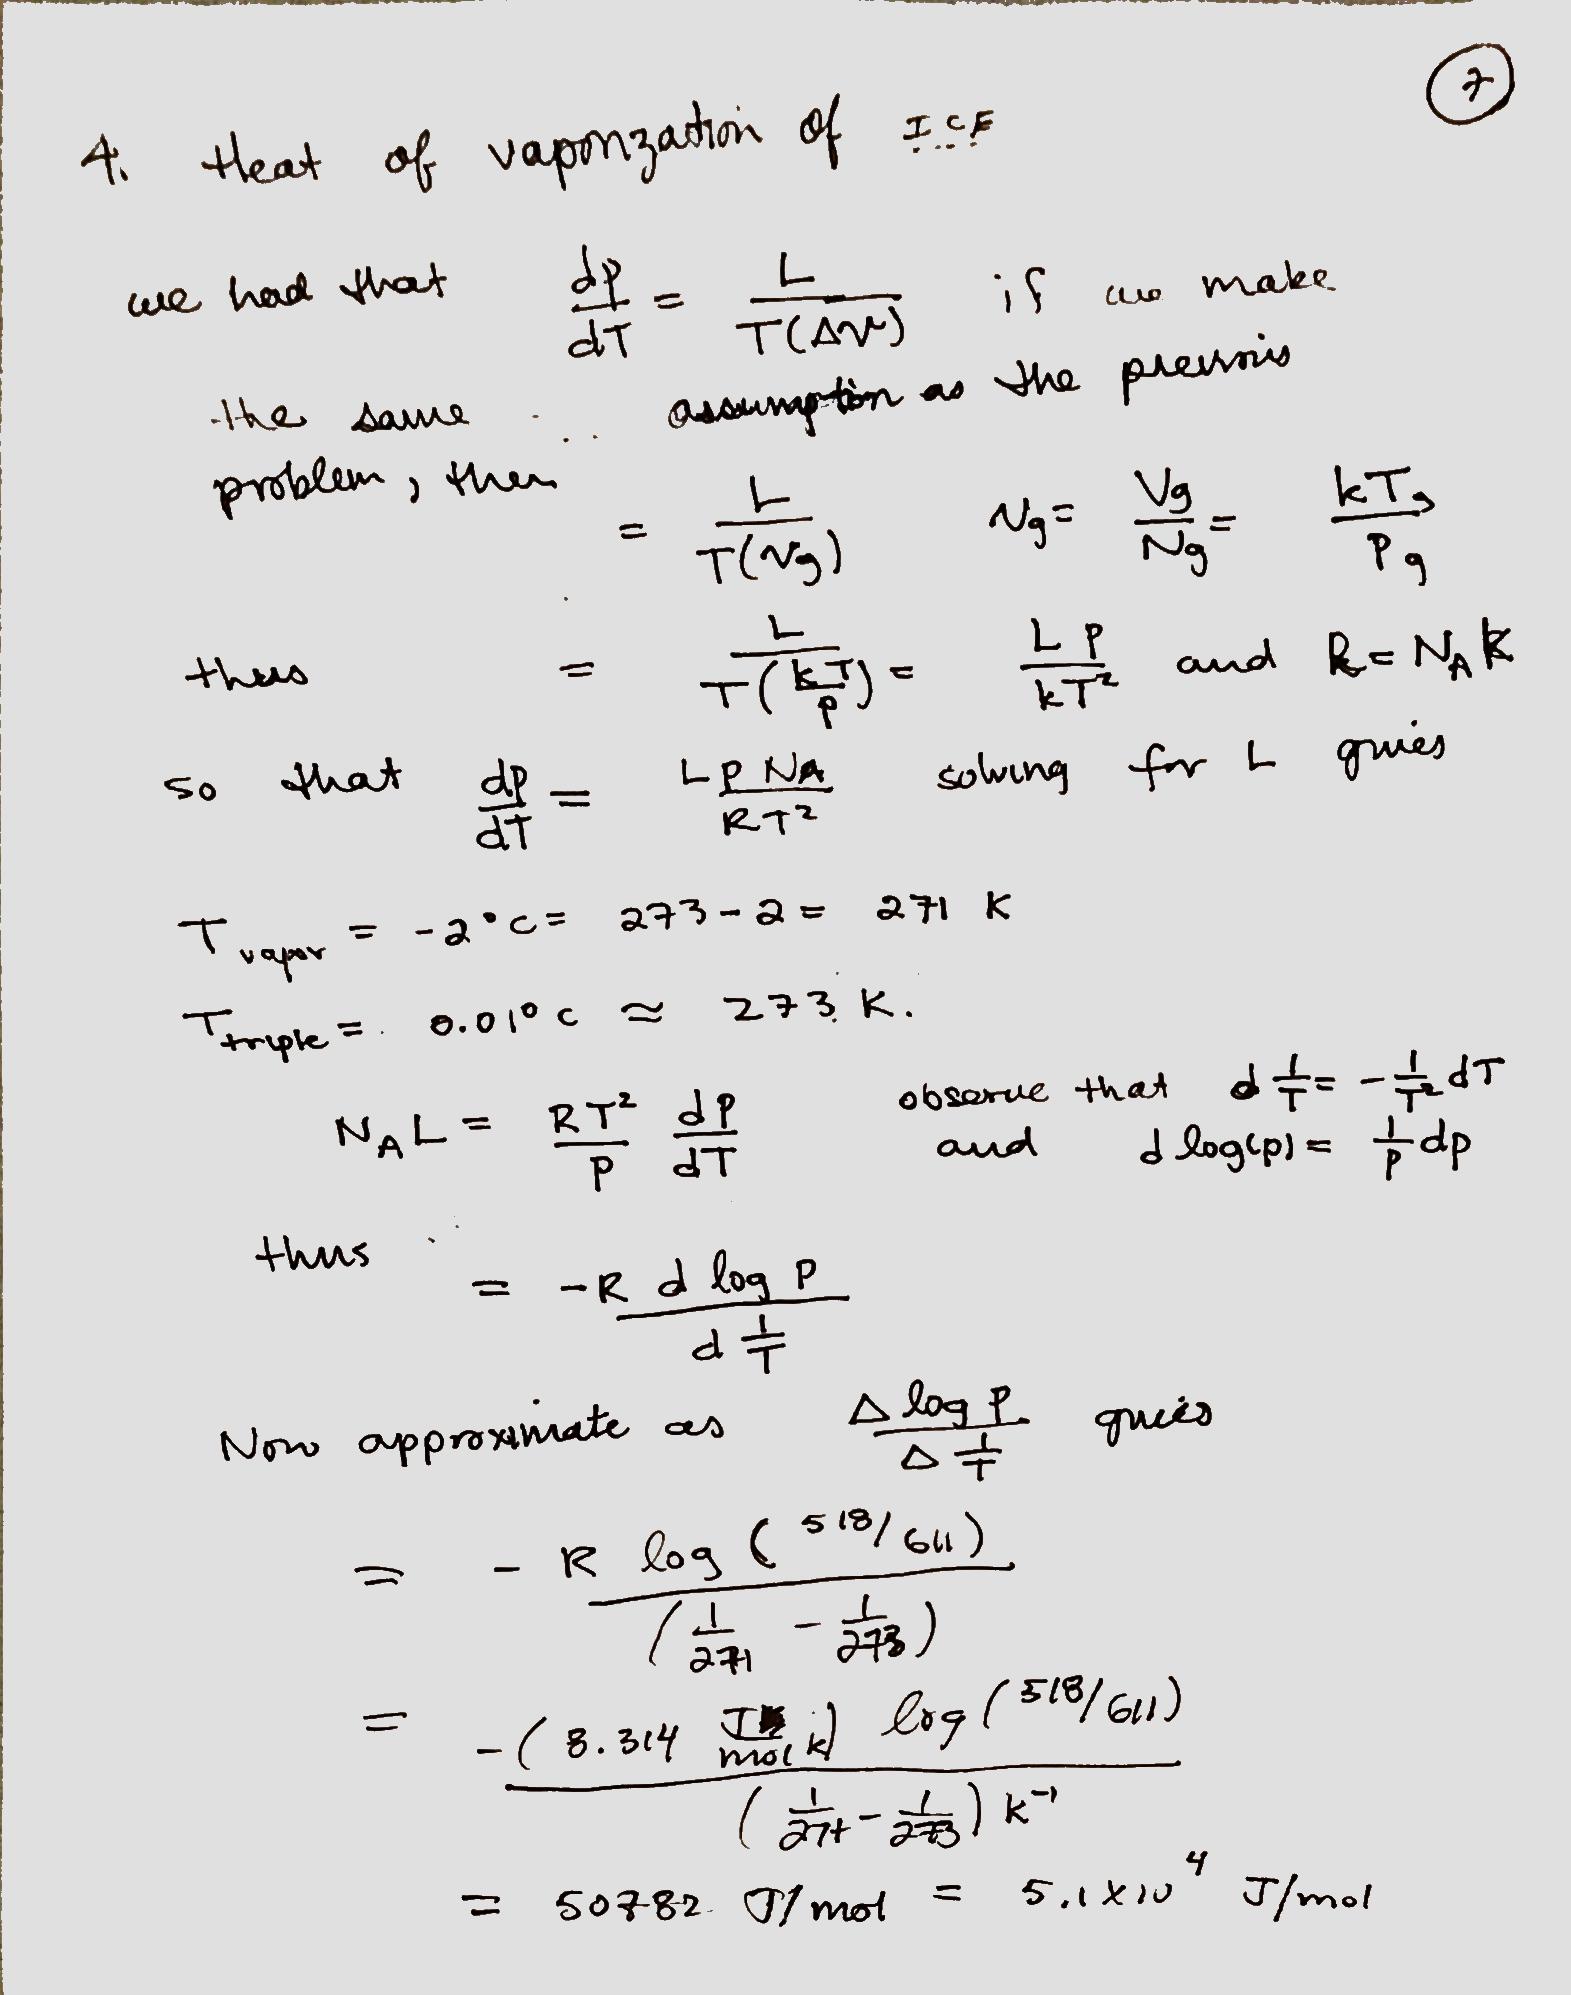 7
4. Heat of vaporization of ICE
we had that dp/dT = L/T(Δv) if we make
the same assumption as the previous
problem, then = L/T(vg) vg = Vg/Ng = kTg/Pg
thus = L/T(kT/p) = LP/kT² and R = N_A k
so that dp/dT = LPN_A/RT² solving for L gives
T vapor = -2°C = 273-2 = 271 K
T triple = 0.01°C ≈ 273 K.
N_A L = RT²/P dP/dT observe that d 1/T = -1/T² dT
and d log(p) = 1/p dp
thus = -R d log P / d 1/T
Now approximate as Δ log P / Δ 1/T gives
= -R log (518/611) / (1/271 - 1/273)
= -(8.314 J/mol K) log (518/611) / (1/271 - 1/273) K⁻¹
= 50782 J/mol = 5.1 × 10⁴ J/mol